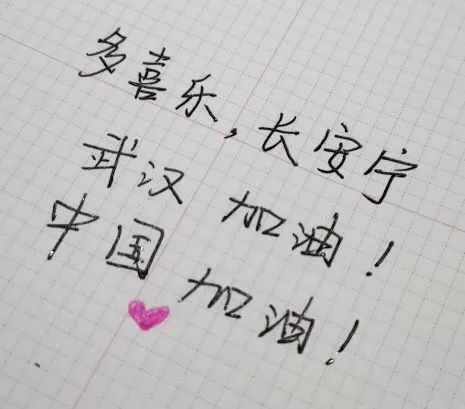 多喜乐，长安宁
武汉 加油！
中国 加油！